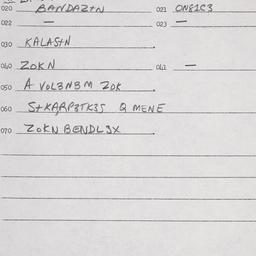 020 BANDAZ±N 021 ON81C3
022 — 023 —
030 KALAS±N
040 ZOKN 041 —
050 A VOL3N8M ZOK
060 S±KARP3TK3S Q MENE
070 ZOKN BENDL3X